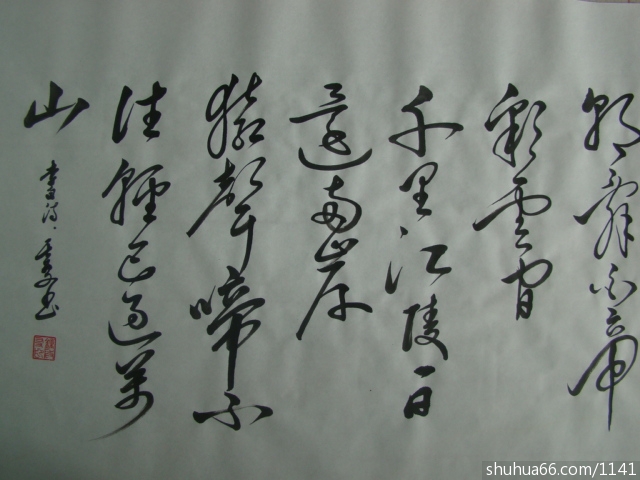 朝辭白帝
彩雲間
千里江陵一日
還兩岸
猿聲啼不
住輕已過萬
山
李白诗
shuhua66.com/1141